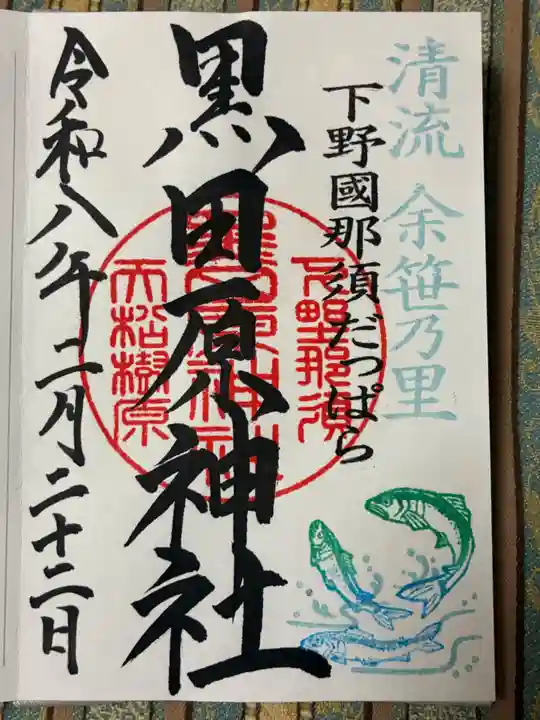 清流 余笹乃里
下野國那須だっぱら
黒田原神社
下野那須
大松樹原
令和八年二月二十二日